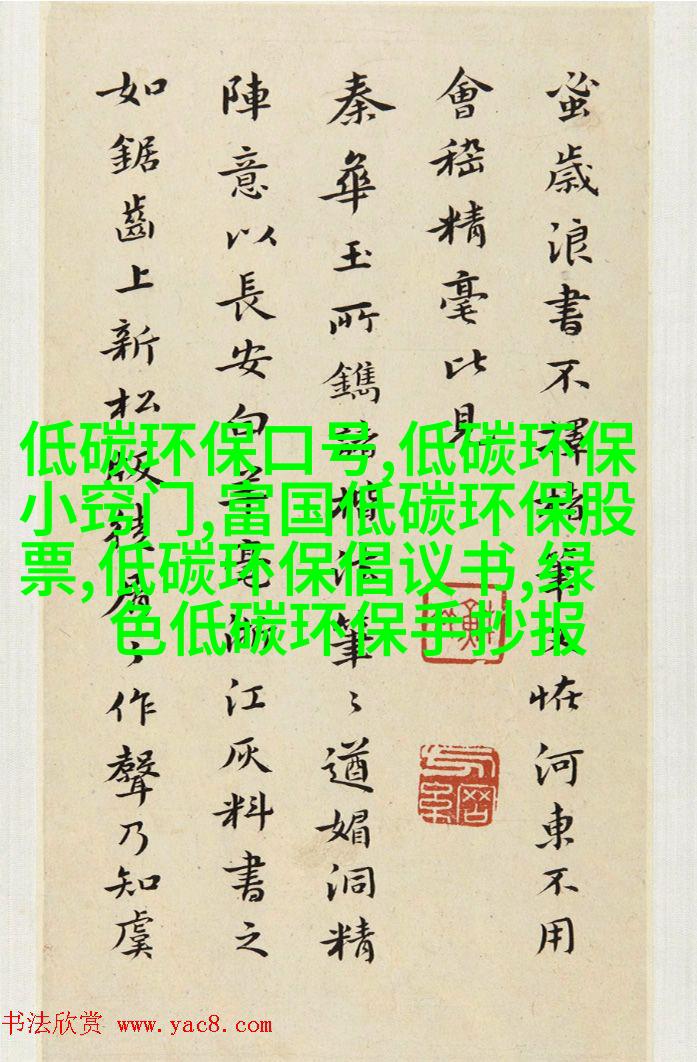 蚤歲浪書不擇揩筆又恠河東不用
會稽精毫比見
秦華玉所鐫諸楷法筆〻遒媚洞精
陳意以長安白羊毫濡江灰料書之
如鋸齒上新松
作聲乃知虞
低碳环保口号,低碳环保
小窍门,富国低碳环保股
票,低碳环保倡议书,绿
色低碳环保手抄报
书法欣赏 www.yac8.com